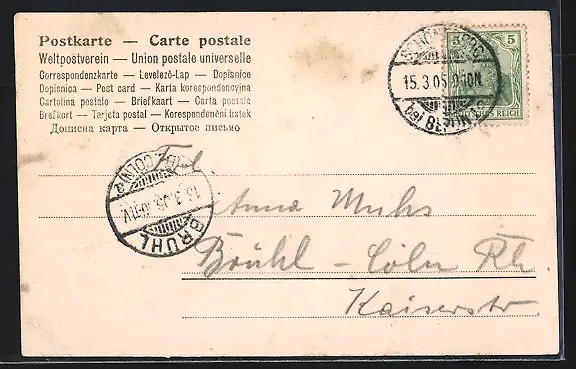 Postkarte — Carte postale
Weltpostverein — Union postale universelle
Correspondenzkarte — Levelező-Lap — Dopisnice
Dopisnica — Post card — Karta korespondencyjna
Cartolina postale — Briefkaart — Carta postala
Brefkort — Tarjeta postal — Korespondenční lístek
Дописна карта — Открытое письмо
5 5
DEUTSCHES REICH
SCHÖNEBERG
15.3.05. 9-10N.
bei BERLIN
(BZ. CÖLN) 2
BRÜHL
Frl.
Anna Muhs
Brühl - Cöln Rh.
Kaiserstr.